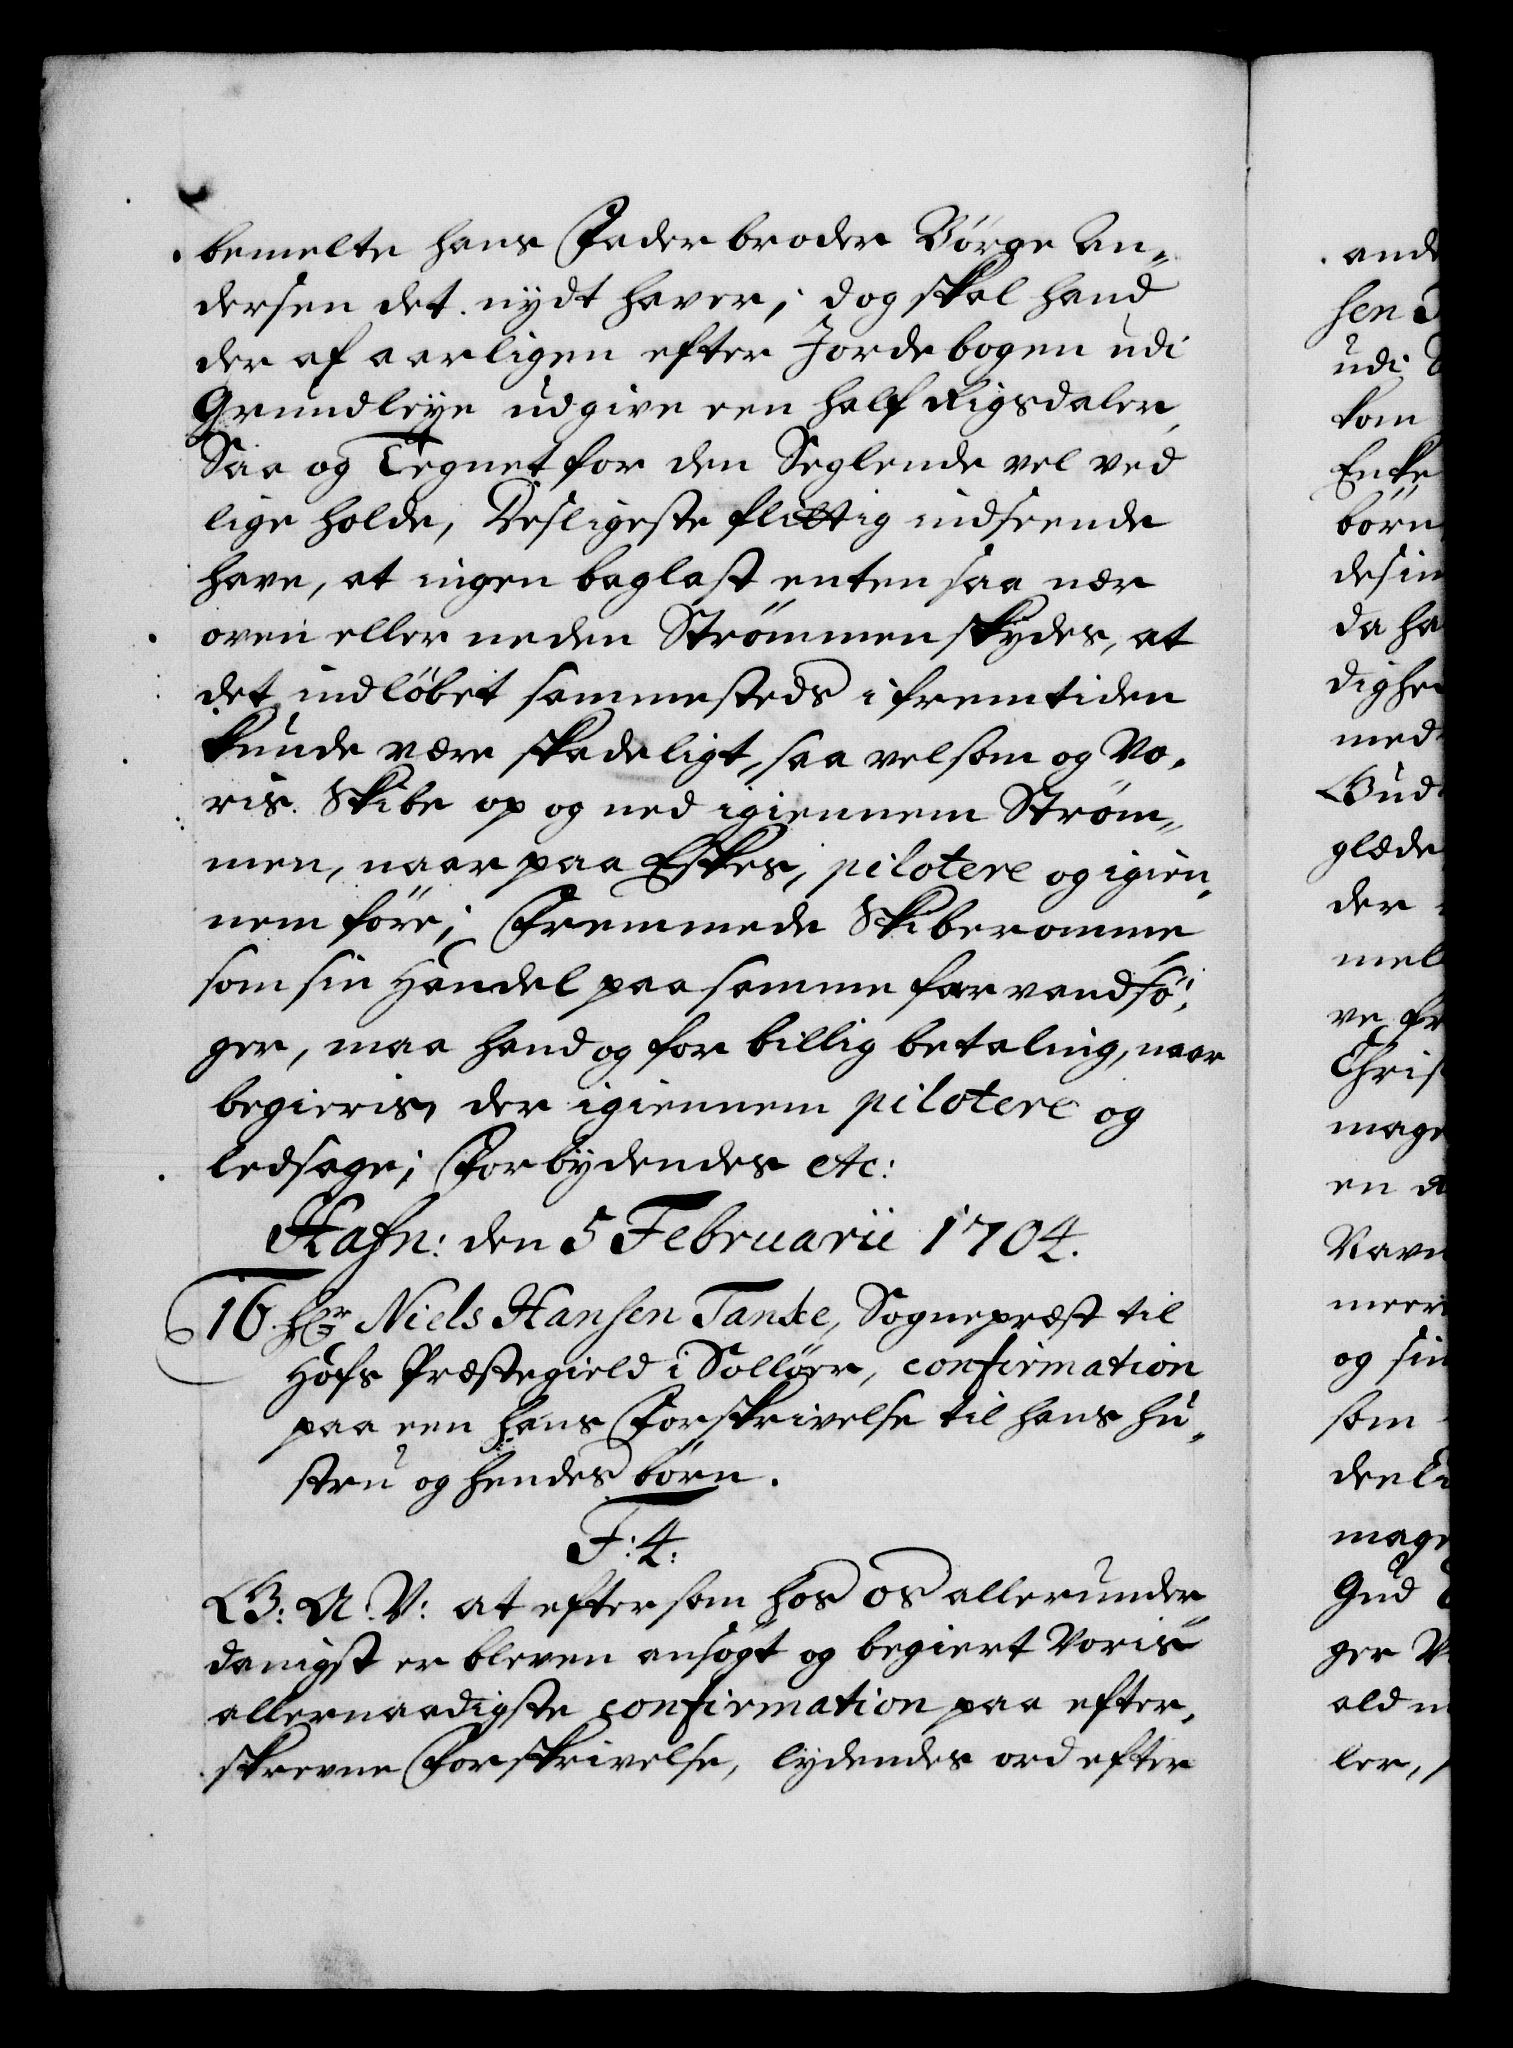 bemelte hans Faderbroder Börge An„
dersen det nÿdt haver; dog skal hand
der af aarligen efter Jordebogen udi
Grundleÿe udgive een half Rigsdaler,
Saa og Tegnet for den Seglende vel ved
lige holde, Desligeste flittig indseende
have, at ingen baglast enten saa nær
oven eller neden Strömmen skÿdes, at
det indlöbet sammesteds i fremtiden
kunde være skadeligt, saa velsom og Vo„
ris Skibe op og ned igiennem Ström„
men, naar paa Eskes, pilotere og igien„
nem före; Fremmede Skiberomme
som sin Handel paa samme farvand sö„
ger, maa hand og for billig betaling, naar
begieris, der igiennem pilotere og
ledsage; Forbÿdendes etc:
Hafn: den 5 Februarii 1704.
16 Hr Niels Hansen Tanke, Sognepræst til
Hofs Præstegield i Sollöer, confirmation
paa een hans Forskrivelse til hans hu„
stru og hendes börn.
F: 4:
G: A: V: at eftersom hos os allerunder„
danigst er bleven ansögt og begiert Voris
allernaadigste confirmation paa efter„
skrevne Forskrivelse, lÿdendes ord efter
ande
sen
udi
kom
Enke
börn
desim
da ha
dighe
med
Gud
glæde
der
mel
ve fr
Chris
mage
en
Navn
meer
og sin
som
deel
mage
Gud
ger
ald
ler,